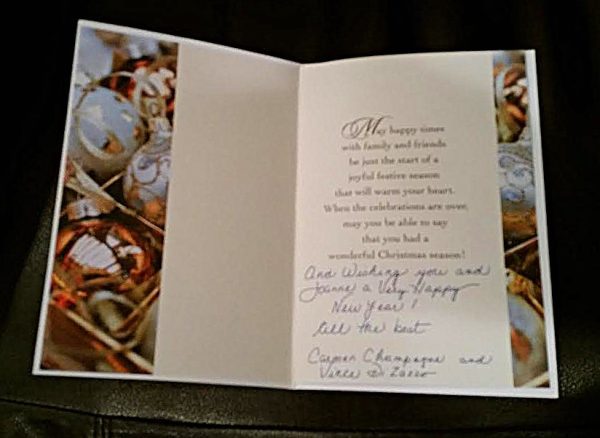 May happy times
with family and friends
be just the start of a
joyful festive season
that will warm your heart.
When the celebrations are over,
may you be able to say
that you had a
wonderful Christmas season!
And Wishing you and
Joanne a Very Happy
New Year!
all the best
Carmen Champagne and
Vince Di